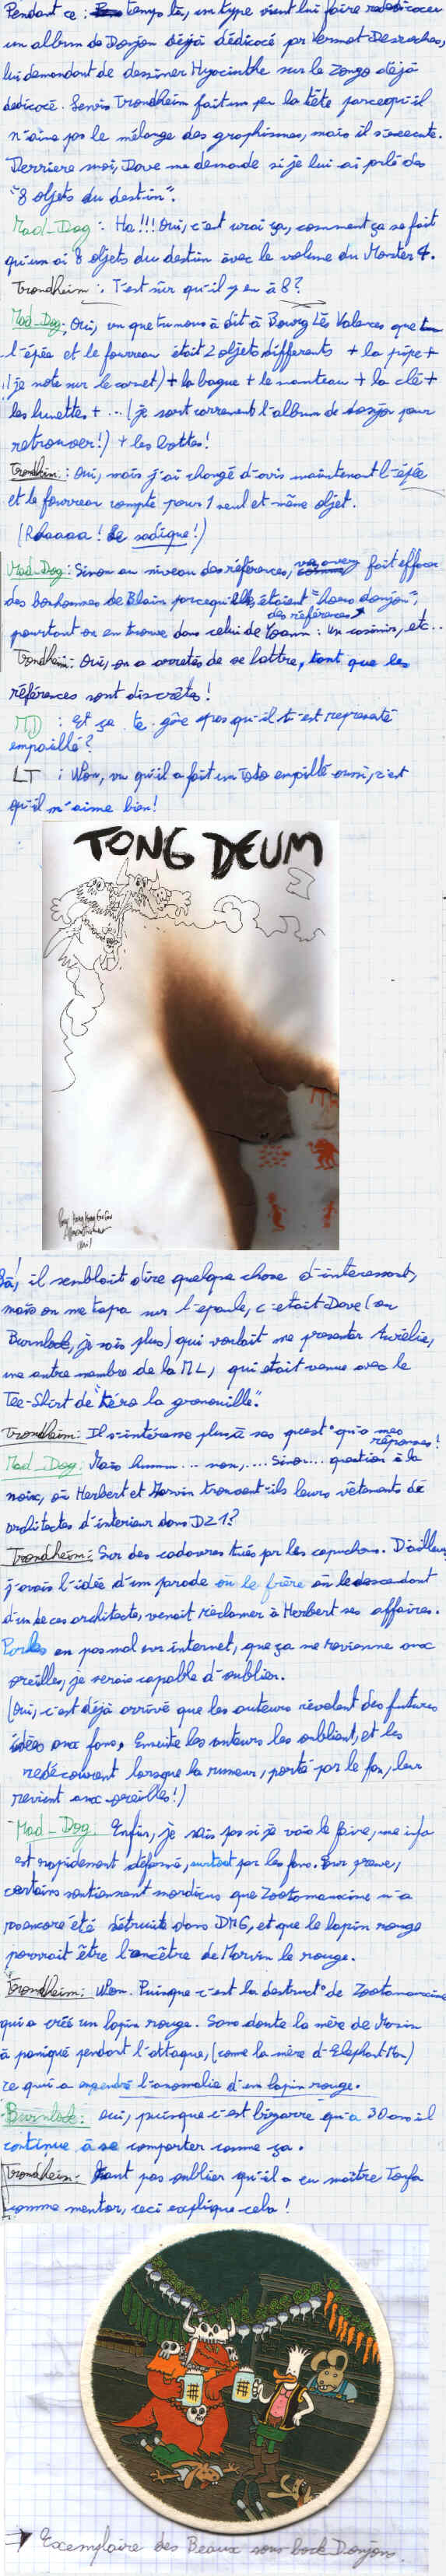 Pendant ce temps là, un type vient lui faire redédicacer
un album de Donjon déjà dédicacé par Vermot Desroches,
lui demandant de dessiner Hyacinthe sur le Zongo déjà
dédicacé. Lewis Trondheim fait un peu la tête parcequ'il
n'aime pas le mélange des graphismes, mais il s'execute.
Derriere moi, Dave me demande si je lui ai parlé des
"8 objets du destin".
Mad-Dog : Ha!!! Oui, c'est vrai ça, comment ça se fait
qu'on ai 8 objets du destin avec le volume du Monster 4.
Trondheim : T'est sûr qu'il y en à 8?
Mad-Dog : Oui, vu que tu nous à dit à Bourg Lès Valences que
l'épée et le fourreau était 2 objets différents + la pipe +
(je note sur le carnet) + la bague + le manteau + la clé +
les lunettes + ... (je sort carrement l'album de donjon pour
retrouver!) + les bottes!
Trondheim : Oui, mais j'ai changé d'avis maintenant l'épée
et le fourreau compte pour 1 seul et même objet.
(Rhaaaa! Le sadique!)
Mad-Dog : Sinon au niveau des références, fait effacer
des bonhommes de Blain parcequ'ils étaient "hors donjon",
pourtant on en trouve des références dans celui de Yoann : Un casimir, etc...
Trondheim : Oui, on a arretés de se battre, tant que les
références sont discrètes!
MD : Et ça te gêne pas qu'il t'est representé
empaillé?
LT : Non, vu qu'il a fait un Toto empaillé aussi, c'est
qu'il m'aime bien!
TONG DEUM
Bâ, il semblait dire quelque chose d'interessant,
mais on me tapa sur l'epaule, c'etait Dave (ou
Burnlock, je sais plus) qui voulait me presenter Aurélie,
une autre membre de la ML, qui etait venue avec le
Tee-Shirt de "Kéro la grenouille".
Trondheim : Il s'intéresse plus à ses quest° qu'à mes
réponses!
Mad-Dog : Mais hummm... non,.... Sinon... question à la
noix, où Herbert et Marvin trouvent-ils leurs vêtements de
architectes d'interieur dans DZ1?
Trondheim : Sur des cadavres tués par les capuchons. D'ailleurs
j'avais l'idée d'un parade où le frère ou le descendant
d'un de ces architecte, venait réclamer à Herbert ses affaires.
Parles en pas mal sur internet, que ça me revienne aux
oreilles, je serais capable d'oublier.
(Oui, c'est déjà arrivé que les auteurs révelent des futures
idées aux fans. Ensuite les auteurs les oublient, et les
redécouvrent lorsque la rumeur, porté par le fan, leur
revient aux oreilles!)
Mad-Dog : Enfin, je sais pas si je vais le faire, une info
est rapidement déformé, surtout par les fans. Pour preuve,
certains soutiennent mordicus que Zootamauxime n'a
pas encore été détruite dans DM6, et que le lapin rouge
pourrait être l'ancêtre de Marvin le rouge.
Trondheim : Non. Puisque c'est la destruct° de Zootamauxime
qui a créé un lapin rouge. Sans doute la mère de Marvin
à paniqué pendant l'attaque, (comme la mère d'Elephant Man)
ce qui a engendré l'anomalie d'un lapin rouge.
Burnlock : oui, puisque c'est bizarre qu'a 30 ans il
continue à se comporter comme ça.
Trondheim : Faut pas oublier qu'il a eu maître Torfa
comme mentor, ceci explique cela!
→ Exemplaire des Beaux sous bock Donjons.